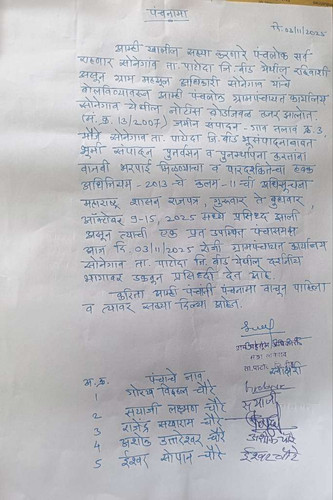 पंचनामा
दि. 03/11/2025
आम्ही खालील सह्या करणारे पंचलोक सर्व
राहणार सोनेगाव ता. पाटोदा जि. बीड येथील रहिवाशी
असून ग्राम महसूल अधिकारी सोनेगाव यांचे
बोलविल्यावरून आम्ही पंचलोक ग्रामपंचायत कार्यालय
सोनेगाव येथील नोटीस बोर्डजवळ हजर आलोत.
(सं. क्र. 13/2007) जमीन संपादन - गाव तलाव क्र. 3
मौजे सोनेगाव ता. पाटोदा जि. बीड भूसंपादनाबाबत
भूमी संपादन पुनर्वसन व पुनर्स्थापना करताना
वाजवी भरपाई मिळण्याचा व पारदर्शकतेचा हक्क
अधिनियम - 2013 चे कलम - 11 ची अधिसूचना
महाराष्ट्र शासन राजपत्र, गुरुवार ते बुधवार,
ऑक्टोबर 9-15, 2025 मध्ये प्रसिध्द झाली
असून त्याची एक प्रत उपस्थित पंचासमक्ष
आज दि. 03/11/2025 रोजी ग्रामपंचायत कार्यालय
सोनेगाव ता. पाटोदा जि. बीड येथील दर्शनीय
भागावर डकवून प्रसिध्दी देत आहे.
करिता आम्ही पंचांनी पंचनामा वाचून पाहिला
व त्यावर सह्या दिल्या आहेत.
ग्राम महसूल अधिकारी
अ. क्र. पंचाचे नाव स्वाक्षरी
1 गोरख विठ्ठल चौरे
2 सयाजी लक्ष्मण चौरे
3 राजेंद्र सखाराम चौरे
4 अशोक उत्तरेश्वर चौरे अशोक चौरे
5 ईश्वर सोपान चौरे ईश्वर चौरे